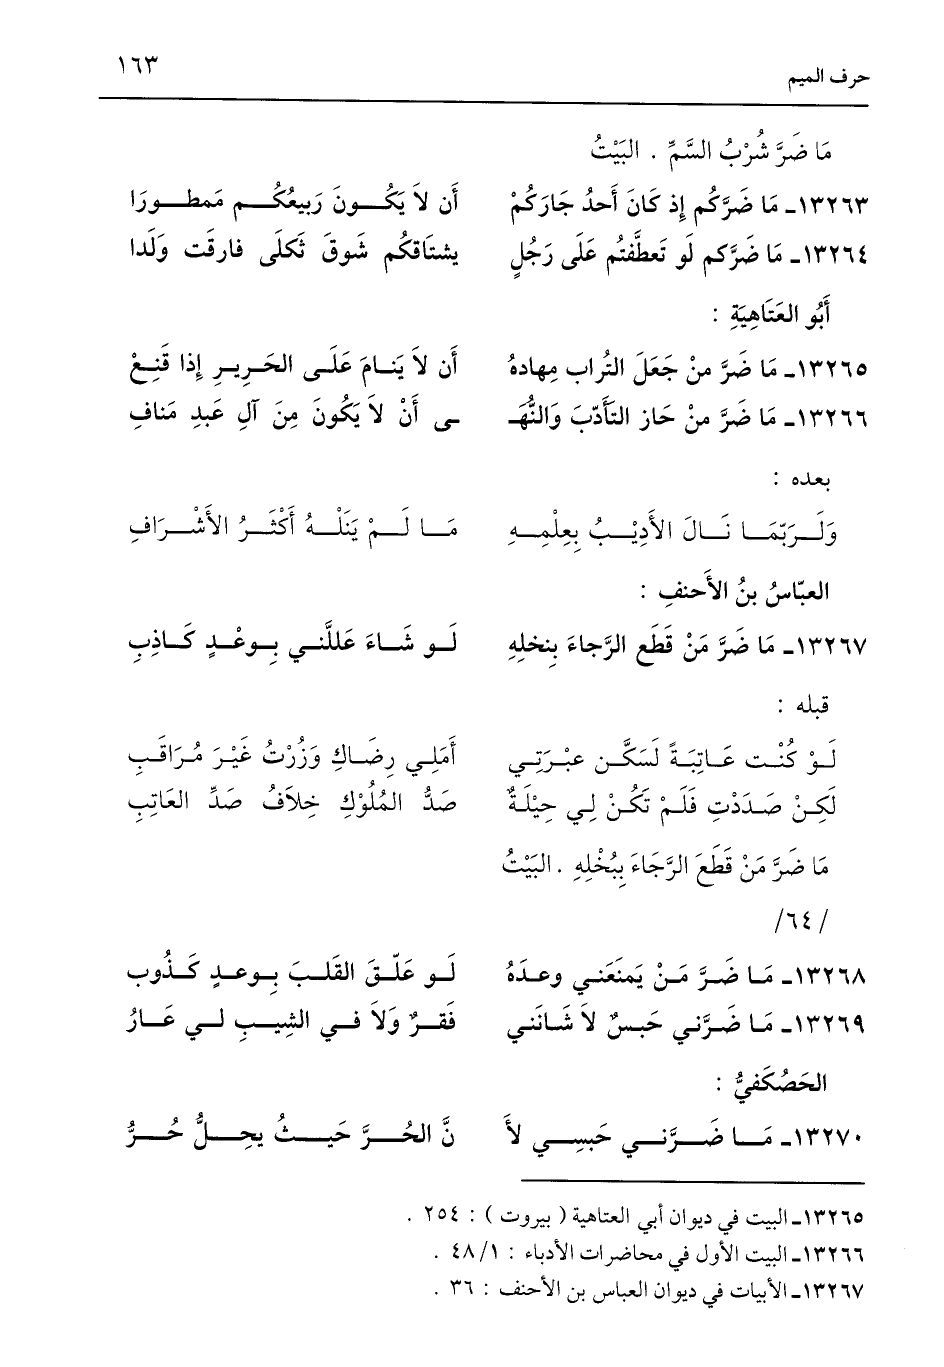 حرف الميم ١٦٣
مَا ضَرَّ شُرْبُ السَّمِّ . البَيْتُ
١٣٢٦٣ـ مَا ضَرَّكُم إِذ كَانَ أَحدُ جَارَكُمْ أَن لاَ يَكُونَ رَبِيعُكُم مَمطورَا
١٣٢٦٤ـ مَا ضَرَّكم لَو تَعطَّفتُم عَلَى رَجُلٍ يشتَاقكُم شَوقَ ثَكلَى فارقَت وَلَدا
أَبُو العَتَاهِيَةِ :
١٣٢٦٥ـ مَا ضَرَّ منْ جَعَلَ التُراب مِهادهُ أَن لاَ يَنامَ عَلَى الحَرِيرِ إِذا قَنِعْ
١٣٢٦٦ـ مَا ضَرَّ منْ حَاز التأدّبَ وَالنُّهَـ ـى أَنْ لاَ يَكُونَ مِنَ آلِ عَبدِ مَنافِ
بعده :
وَلَرَبّمَا نَالَ الأَدِيْبُ بِعِلْمِهِ مَا لَمْ يَنَلْهُ أَكْثَرُ الأَشْرَافِ
العبّاسُ بنُ الأَحنفِ :
١٣٢٦٧ـ مَا ضَرَّ مَنْ قَطَع الرَّجاءَ بِنخلِهِ لَو شَاءَ عَللَّني بِوعْدٍ كَاذِبِ
قبله :
لَوْ كُنْتِ عَاتِبَةً لَسَكَّن عبْرَتِي أَمَلِي رِضَاكِ وَزُرْتُ غَيْرَ مُرَاقَبِ
لَكِنْ صَدَدْتِ فَلَمْ تَكُنْ لِي حِيْلَةٌ صَدُّ المُلُوْكِ خِلاَفُ صَدِّ العَاتِبِ
مَا ضَرَّ مَنْ قَطَعَ الرَّجَاءَ بِبُخْلِهِ . البَيْتُ
/٦٤/
١٣٢٦٨ـ مَا ضَرَّ مَنْ يَمنَعَني وعدَهُ لَو عَلّقَ القَلبَ بِوعدٍ كَذُوب
١٣٢٦٩ـ مَا ضَرَّني حَبسٌ لاَ شَانَني فَقرٌ وَلاَ في الشِيبِ لي عَارُ
الحَصْكَفيُّ :
١٣٢٧٠ـ مَا ضَرَّني حَبسِي لأَ نَّ الحُرَّ حَيثُ يحِلُّ حُرُّ
١٣٢٦٥ـ البيت في ديوان أبي العتاهية ( بيروت ) : ٢٥٤ .
١٣٢٦٦ـ البيت الأول في محاضرات الأدباء : ٤٨/١ .
١٣٢٦٧ـ الأبيات في ديوان العباس بن الأحنف : ٣٦ .